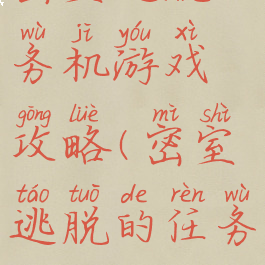 wù jī yóu xì
务机游戏
gōng lüè mì shì
攻略(密室
táo tuō de rèn wù
逃脱的任务